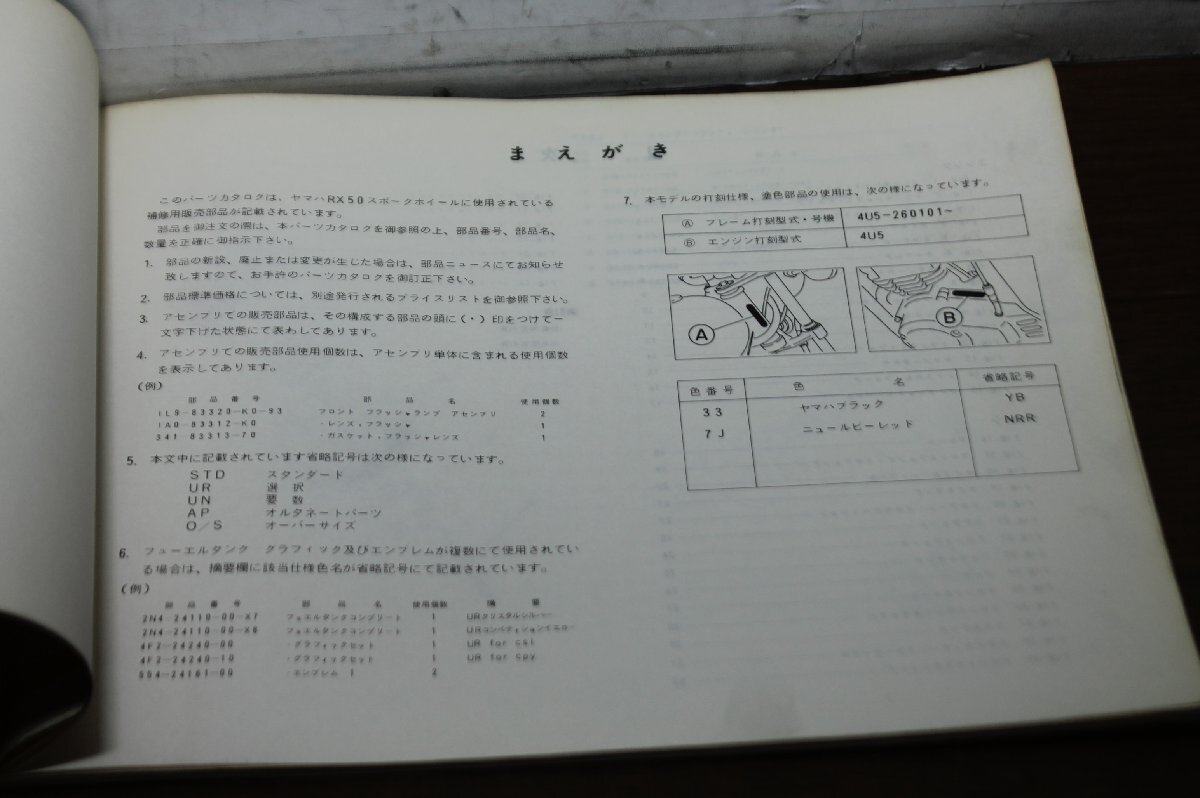 まえがき
このパーツカタログは、ヤマハRX50スポークホイールに使用されている
補修用販売部品が記載されています。
部品を御注文の際は、本パーツカタログを御参照の上、部品番号、部品名、
数量を正確に御指示下さい。
1. 部品の新設、廃止または変更が生じた場合は、部品ニュースにてお知らせ
致しますので、お手許のパーツカタログを御訂正下さい。
2. 部品標準価格については、別途発行されるプライスリストを御参照下さい。
3. アセンブリでの販売部品は、その構成する部品の頭に(・)印をつけて一
文字下げた状態にて表わしてあります。
4. アセンブリでの販売部品使用個数は、アセンブリ単体に含まれる使用個数
を表示してあります。
(例)
部品番号 部品名 使用個数
1L9-83320-K0-93 フロント フラッシャランプ アセンブリ 2
1A0-83312-K0 ・レンズ,フラッシャ 1
341 83313-70 ・ガスケット,フラッシャレンズ 1
5. 本文中に記載されています省略記号は次の様になっています。
STD スタンダード
UR 選択
UN 要数
AP オルタネートパーツ
O/S オーバーサイズ
6. フューエルタンク グラフィック及びエンブレムが複数にて使用されてい
る場合は、摘要欄に該当仕様色名が省略記号にて記載されています。
(例)
部品番号 部品名 使用個数 摘要
2N4 24110-00-X7 フュエルタンクコンプリート 1 URクリスタルシルバー
2N4-24110-00-X6 フュエルタンクコンプリート 1 URコンペティションイエロー
4F2-24240-00 ・グラフィックセット 1 UR for csl
4F2-24240-10 ・グラフィックセット 1 UR for cpy
5S4-24161-00 ・エンブレム 1 2
7. 本モデルの打刻仕様、塗色部品の使用は、次の様になっています。
Ⓐ フレーム打刻型式・号機 4U5-260101~
Ⓑ エンジン打刻型式 4U5
A
B
色番号 色名 省略記号
33 ヤマハブラック YB
7J ニュールビーレッド NRR